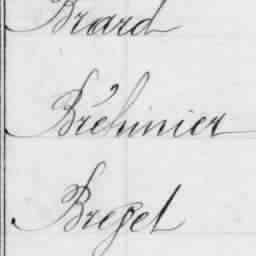 Brard
Bréhinier
Breget